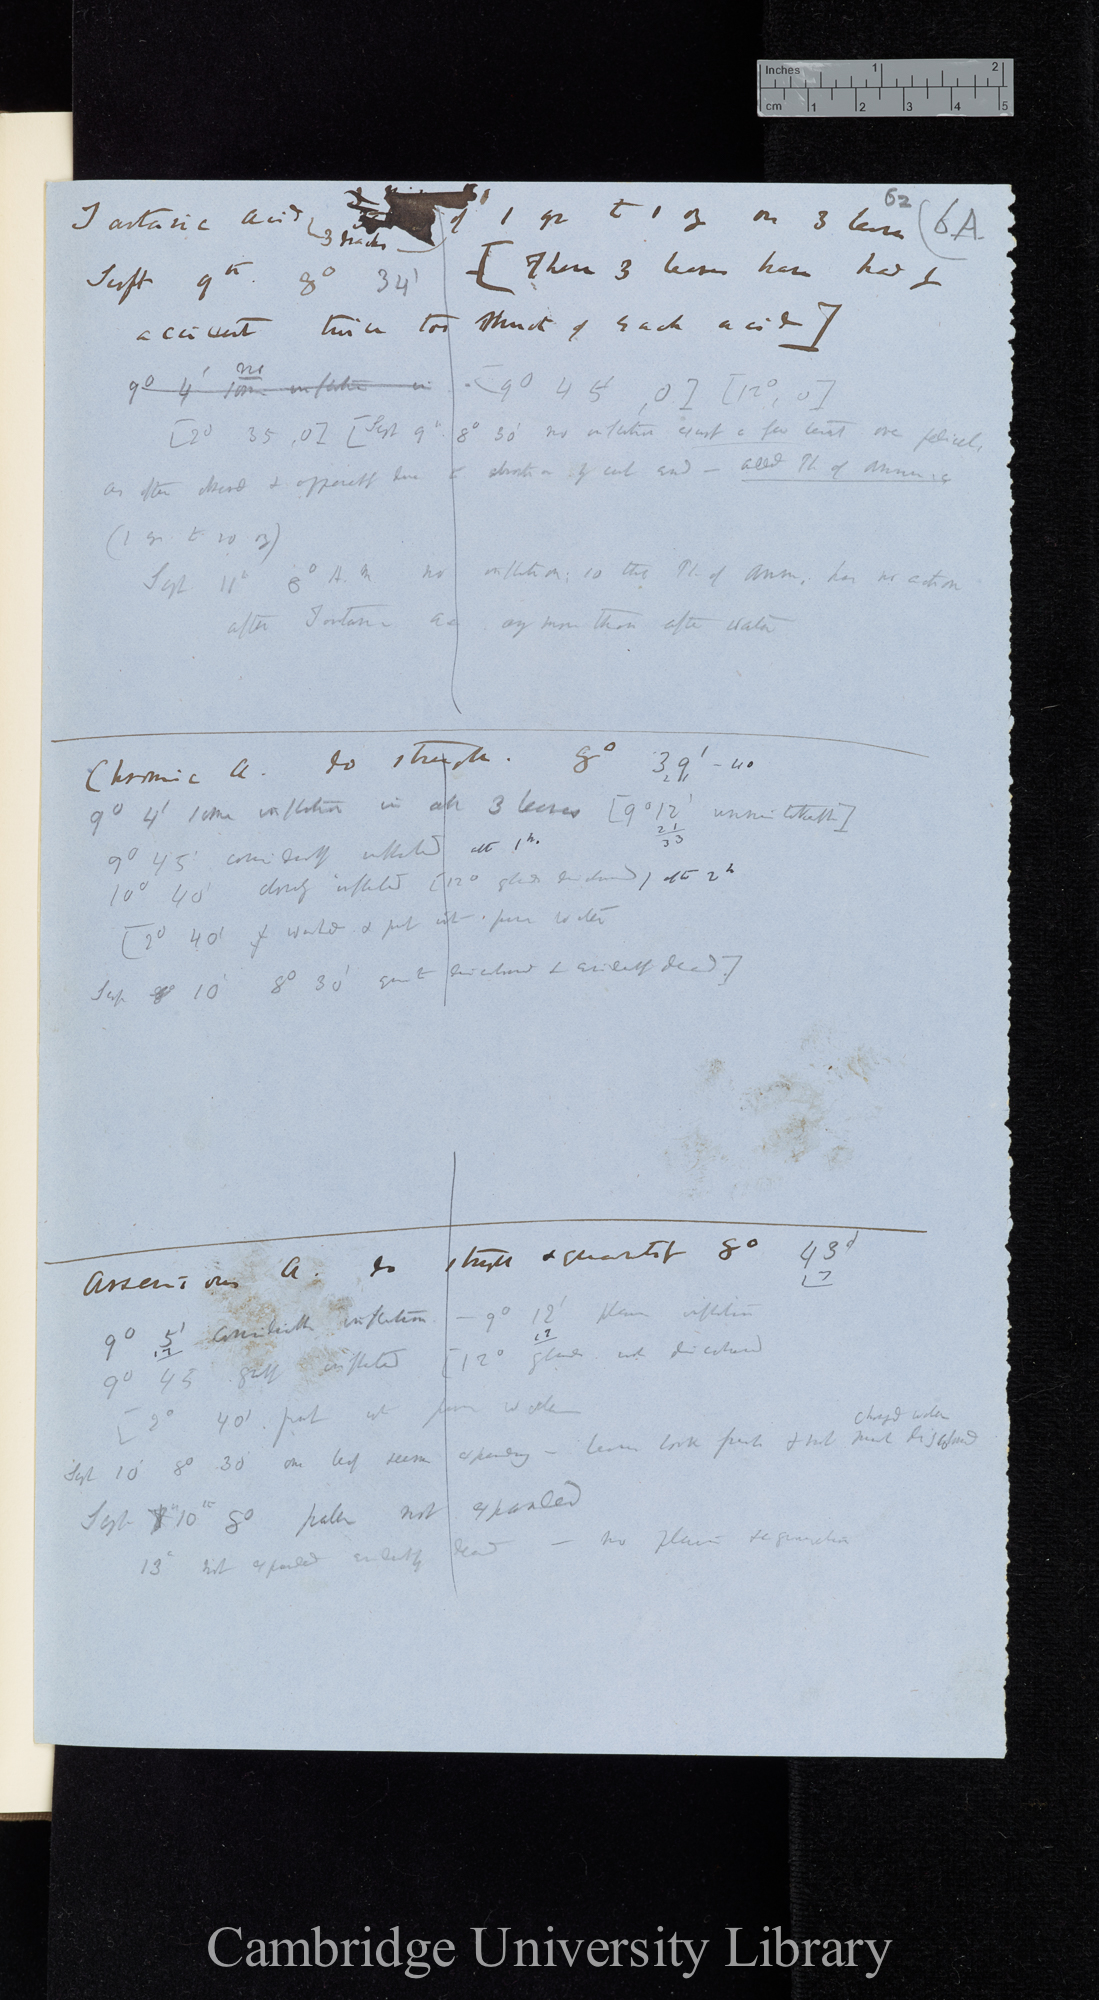 Inches 1 2
cm 1 2 3 4 5
62
Tartaric acid 3 drachms of 1 gr to 1 oz on 3 leaves (6A
Sept 9th. 8° 34' [These 3 leaves have had by
accident twice too much of each acid]
9° 4' no some inflection in [9° 45, 0] [12°, 0]
[2° 35, 0] [Sept 9th 8° 30' no inflection except a few tent over pedicel,
as often observed & apparently due to of cut end — added Ph of Ammonia
(1 gr to 20 oz)
Sept 11th 8° A.M. no inflection; so that Ph of Amm. has no action
after Tartaric ac any more than after water
Chromic A. do strength. 8° 39' - 40
9° 4' some inflection in all 3 leaves [9° 12' unmistakeable]
21
33
9° 45' considerably inflected after 1h.
10° 40' closely inflected [12° glands discoloured] after 2h
[2° 40' washed & put into pure water
Sept 10' 8° 30' quite discoloured & evidently dead]
Arsenious A. do strength & quantity 8° 43'
17
9° 5' considerable inflection — 9° 12' plain inflection
12 17
9° 45 greatly inflected [12° glands not discoloured
[2° 40' put into pure water
changed water
Sept 10' 8° 30' one leaf seems expanding — leaves look fresh & not much discoloured
Sept 10th 8° paler not expanded
13° not expanded evidently dead — no plain segregation
Cambridge University Library